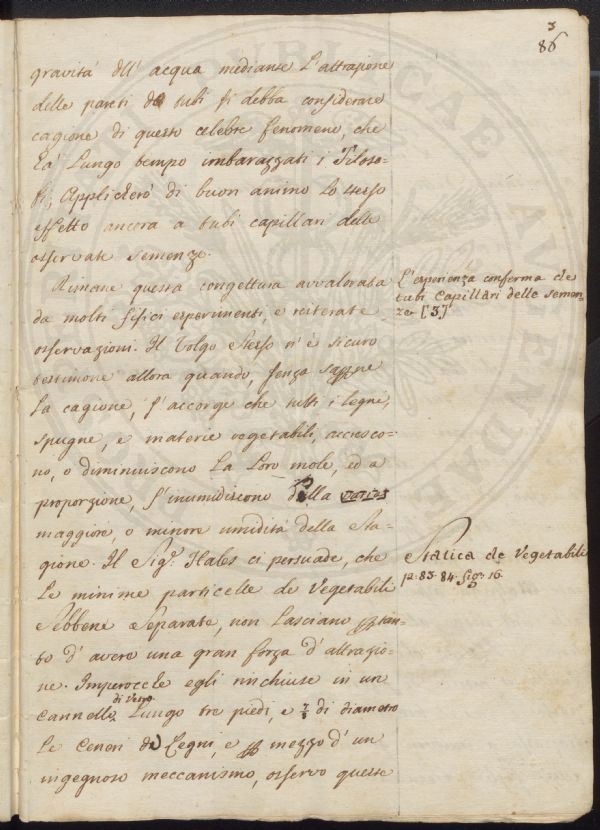 3
86
gravità dell' acqua mediante L'attrazione
delle pareti de tubi si debba considerare
cagione di questo celebre fenomeno, che
ha Lungo tempo imbarazzati i Filoso=
fi; Applicherò di buon animo Lo stesso
effetto ancora a tubi capillari delle
osservate semenze.
Rimane questa congettura avvalorata
da molti fisici esperimenti, e reiterate
osservazioni. Il Volgo stesso n'è sicuro
testimone allora quando, senza saperne
La cagione, s'accorge che tutti i Legni,
spugne, e materie vegetabili, accresco=
no, o diminuiscono La Loro mole, ed a
proporzione, s'inumidiscono dalla
maggiore, o minore umidità della Sta=
gione. Il Sig.r Hales ci persuade, che
Le minime particelle de Vegetabili
Sebbene Separate, non Lasciano per tan=
to d'avere una gran forza d'attrazio=
ne. Imperocchè egli rinchiuse in un
cannello di vetro Lungo tre piedi, e 7/8 di diametro
Le Ceneri di Legni, e per mezzo d'un
ingegnoso meccanismo, osservò queste
L'esperienza conferma che
tubi Capillari delle semen=
ze [3]
Statica de Vegetabili
p. 83. 84. fig. 16.